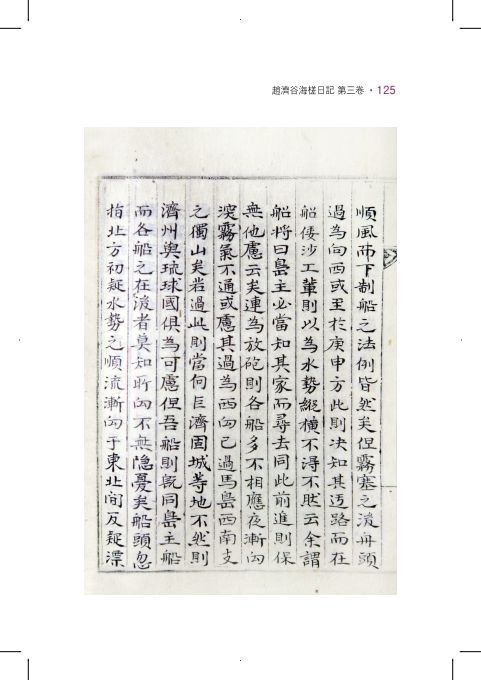 趙濟谷海槎日記 第三卷 · 125
順風而下制船之法例皆然矣但霧塞之後舟頭
過為向西或至於庚申方此則決知其迃路而在
船倭沙工輩則以為水勢縱橫不得不然云余謂
船將曰島主必當知其家而尋去同此前進則保
無他慮云矣連為放砲則各船多不相應夜漸向
深霧氣不通或慮其過為西向已過馬島西南支
之獨山矣若過此則當向巨濟固城等地不然則
濟州與琉球國俱為可慮但吾船則旣同島主船
而各船之在後者莫知所向不無隱憂矣船頭忽
指北方初疑水勢之順流漸向于東北間反疑漂